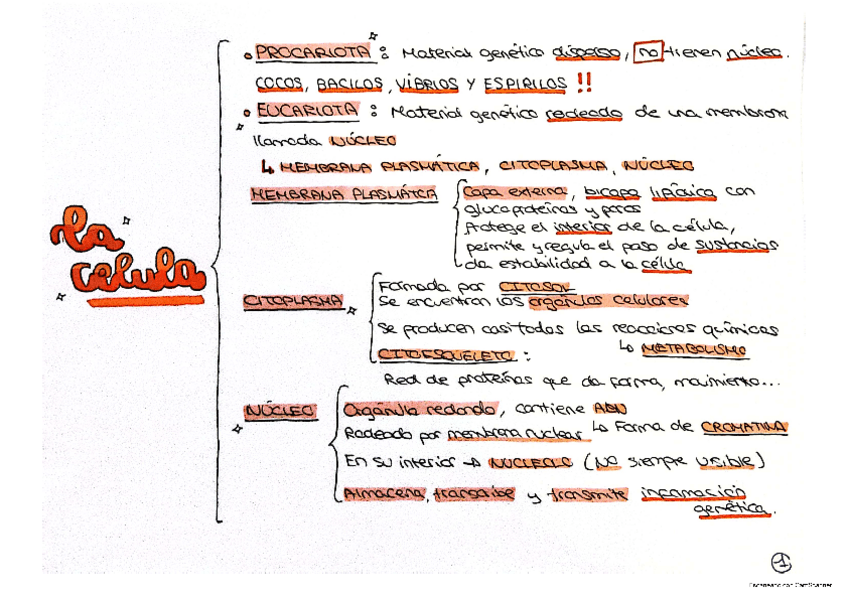 La célula
• PROCARIOTA : Material genético disperso, no tienen núcleo.
COCOS, BACILOS, VÍBRIOS Y ESPIRILOS !!
• EUCARIOTA : Material genético rodeado de una membrana
llamada NÚCLEO
↳ MEMBRANA PLASMÁTICA, CITOPLASMA, NÚCLEO
MEMBRANA PLASMÁTICA
Capa externa, bicapa lipídica con
glucoproteínas y poros
Protege el interior de la célula,
permite y regula el paso de sustancias
da estabilidad a la célula
CITOPLASMA
Formada por CITOSOL
Se encuentran los orgánulos celulares
Se producen casi todas las reacciones químicas
↳ METABOLISMO
CITOESQUELETO :
Red de proteínas que da forma, movimiento...
NÚCLEO
Orgánulo redondo, contiene ADN
↳ Forma de CROMATINA
Rodeado por membrana nuclear
En su interior → NUCLEOLO (No siempre visible)
Almacena, transcribe y transmite información
genética.
1
Escaneado con CamScanner